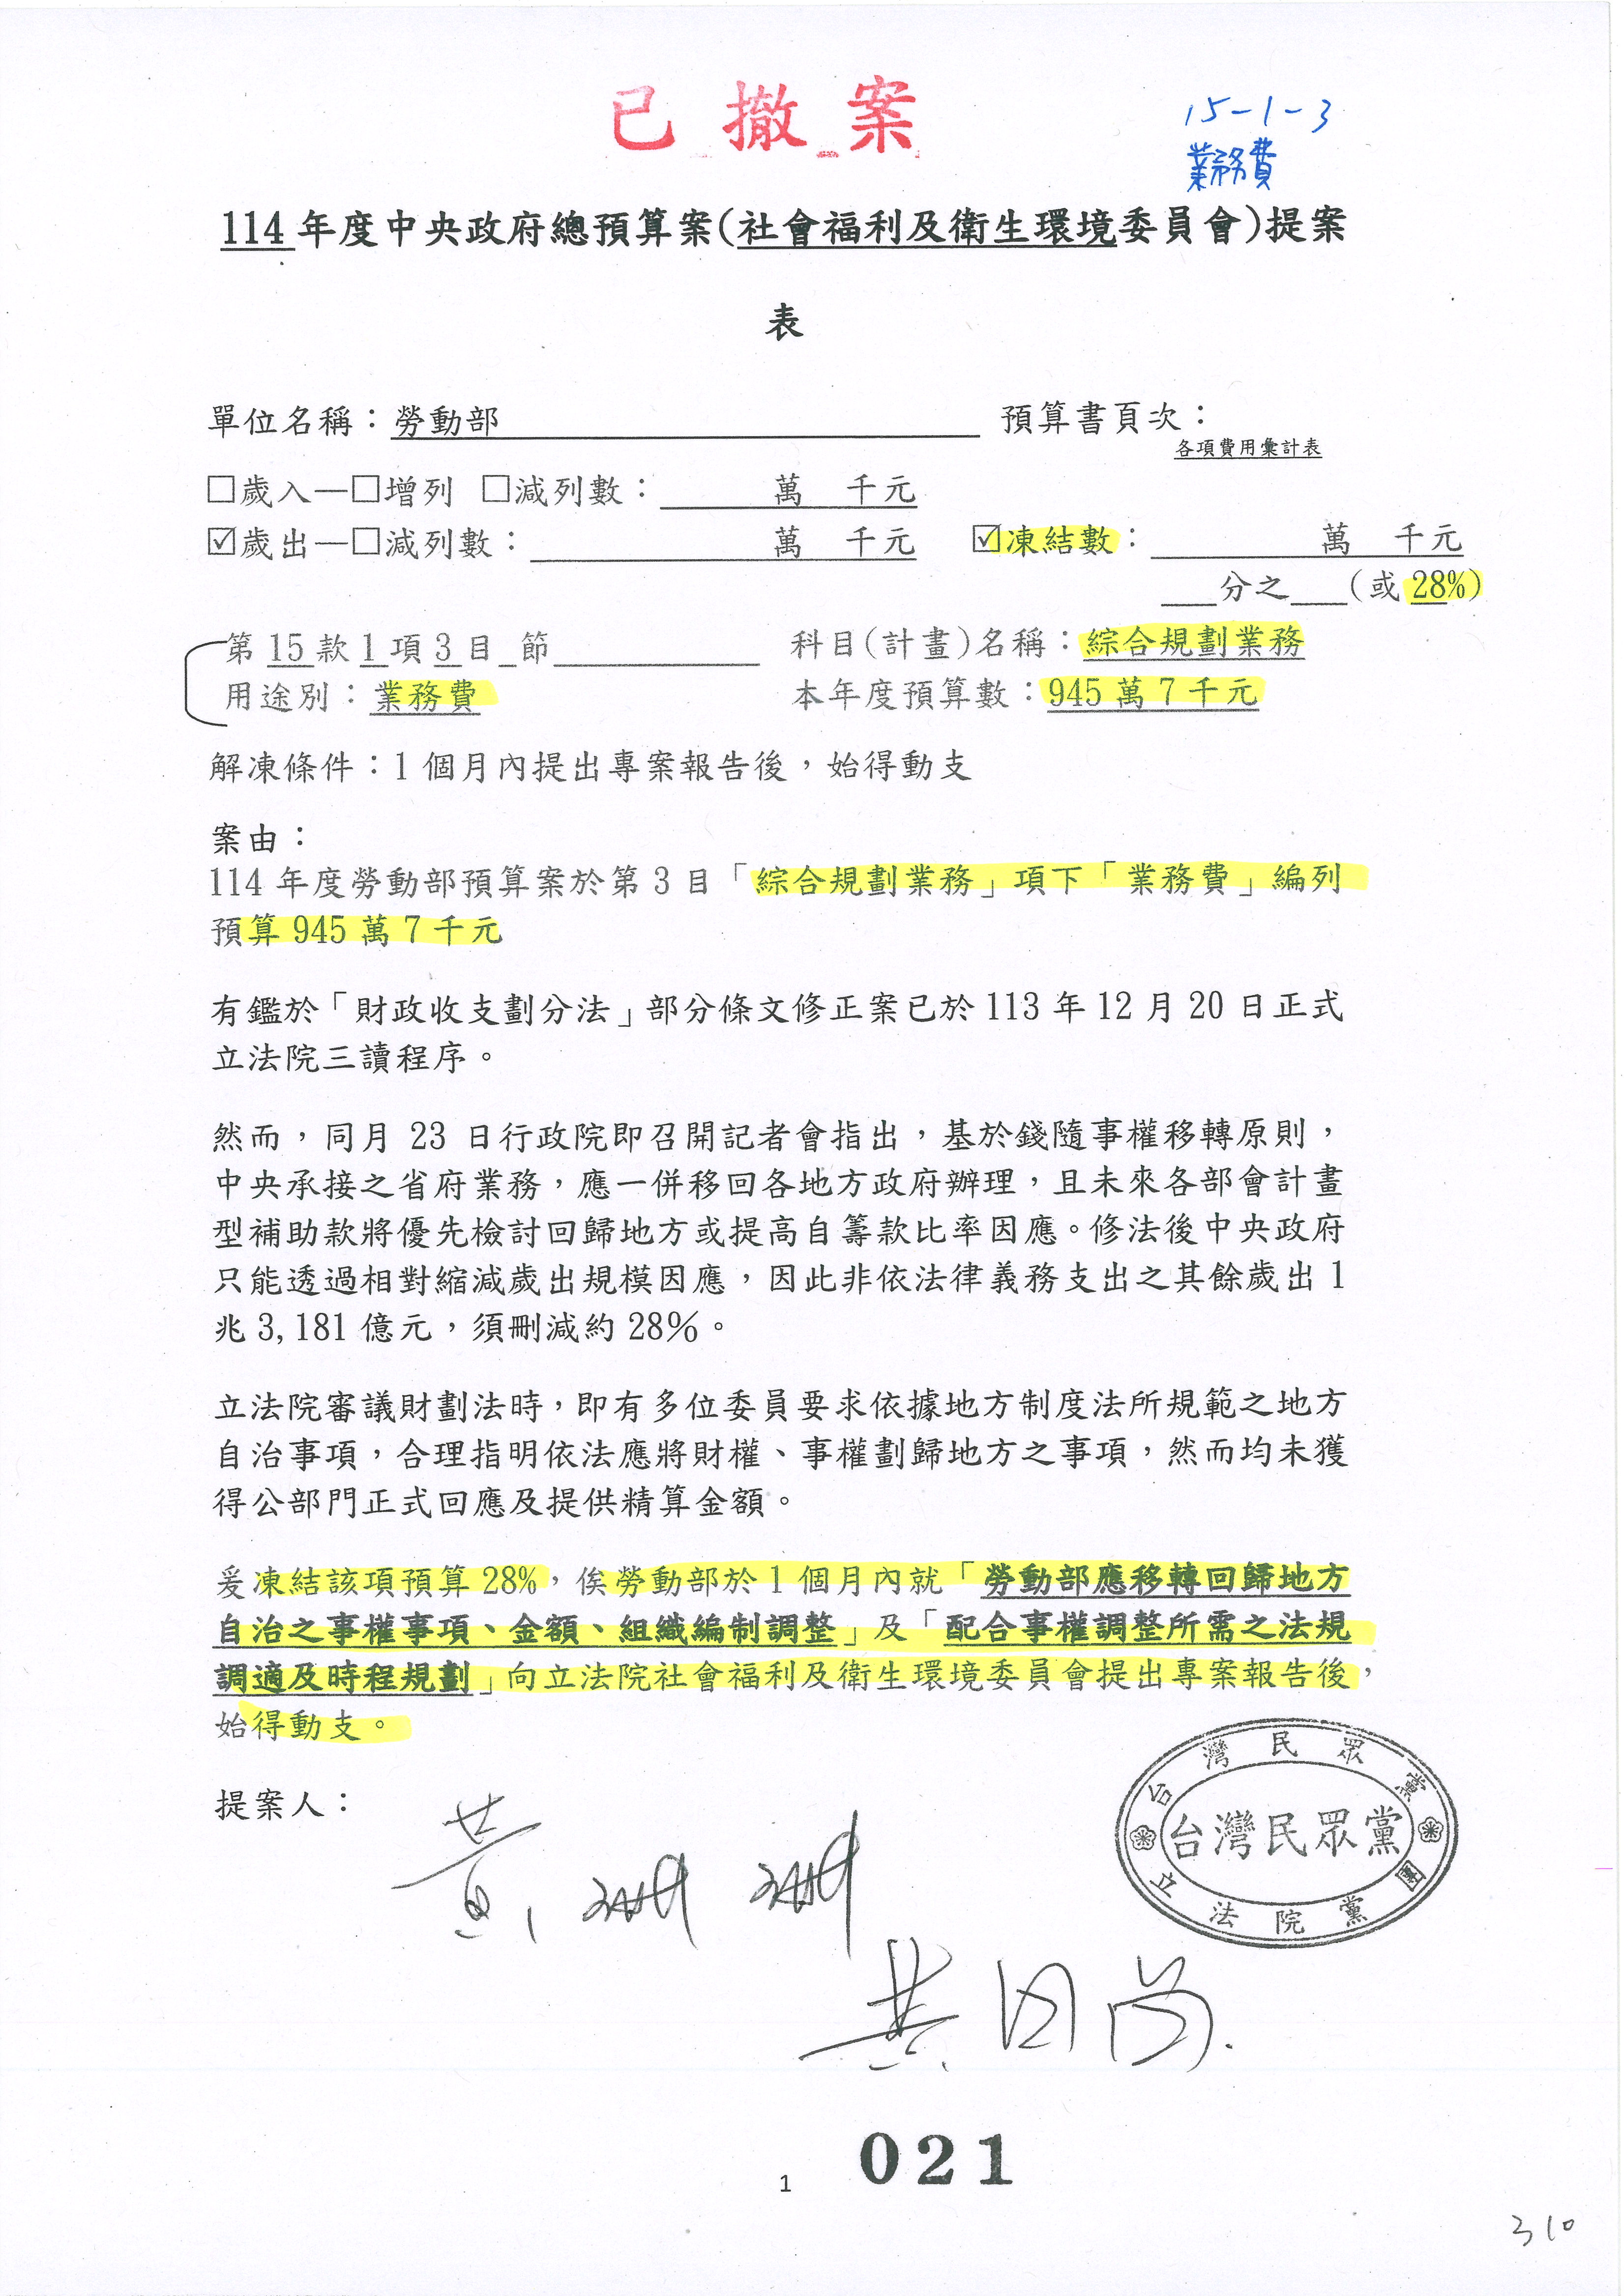 已撤案
15-1-3
業務費
114年度中央政府總預算案(社會福利及衛生環境委員會)提案
表
單位名稱：勞動部 預算書頁次：
各項費用彙計表
□歲入—□增列 □減列數：＿＿＿萬 千元
☑歲出—□減列數：＿＿＿萬 千元 ☑凍結數：＿＿＿萬 千元
＿分之＿(或 28%)
第 15 款 1 項 3 目 _節＿＿＿ 科目(計畫)名稱：綜合規劃業務
用途別：業務費 本年度預算數：945 萬 7 千元
解凍條件：1 個月內提出專案報告後，始得動支
案由：
114 年度勞動部預算案於第 3 目「綜合規劃業務」項下「業務費」編列
預算 945 萬 7 千元
有鑑於「財政收支劃分法」部分條文修正案已於 113 年 12 月 20 日正式
立法院三讀程序。
然而，同月 23 日行政院即召開記者會指出，基於錢隨事權移轉原則，
中央承接之省府業務，應一併移回各地方政府辦理，且未來各部會計畫
型補助款將優先檢討回歸地方或提高自籌款比率因應。修法後中央政府
只能透過相對縮減歲出規模因應，因此非依法律義務支出之其餘歲出 1
兆 3,181 億元，須刪減約 28%。
立法院審議財劃法時，即有多位委員要求依據地方制度法所規範之地方
自治事項，合理指明依法應將財權、事權劃歸地方之事項，然而均未獲
得公部門正式回應及提供精算金額。
爰凍結該項預算 28%，俟勞動部於 1 個月內就「勞動部應移轉回歸地方
自治之事權事項、金額、組織編制調整」及「配合事權調整所需之法規
調適及時程規劃」向立法院社會福利及衛生環境委員會提出專案報告後，
始得動支。
提案人：
黃珊珊
台灣民眾黨立法院黨團
台灣民眾黨
黃國昌
021
1
310